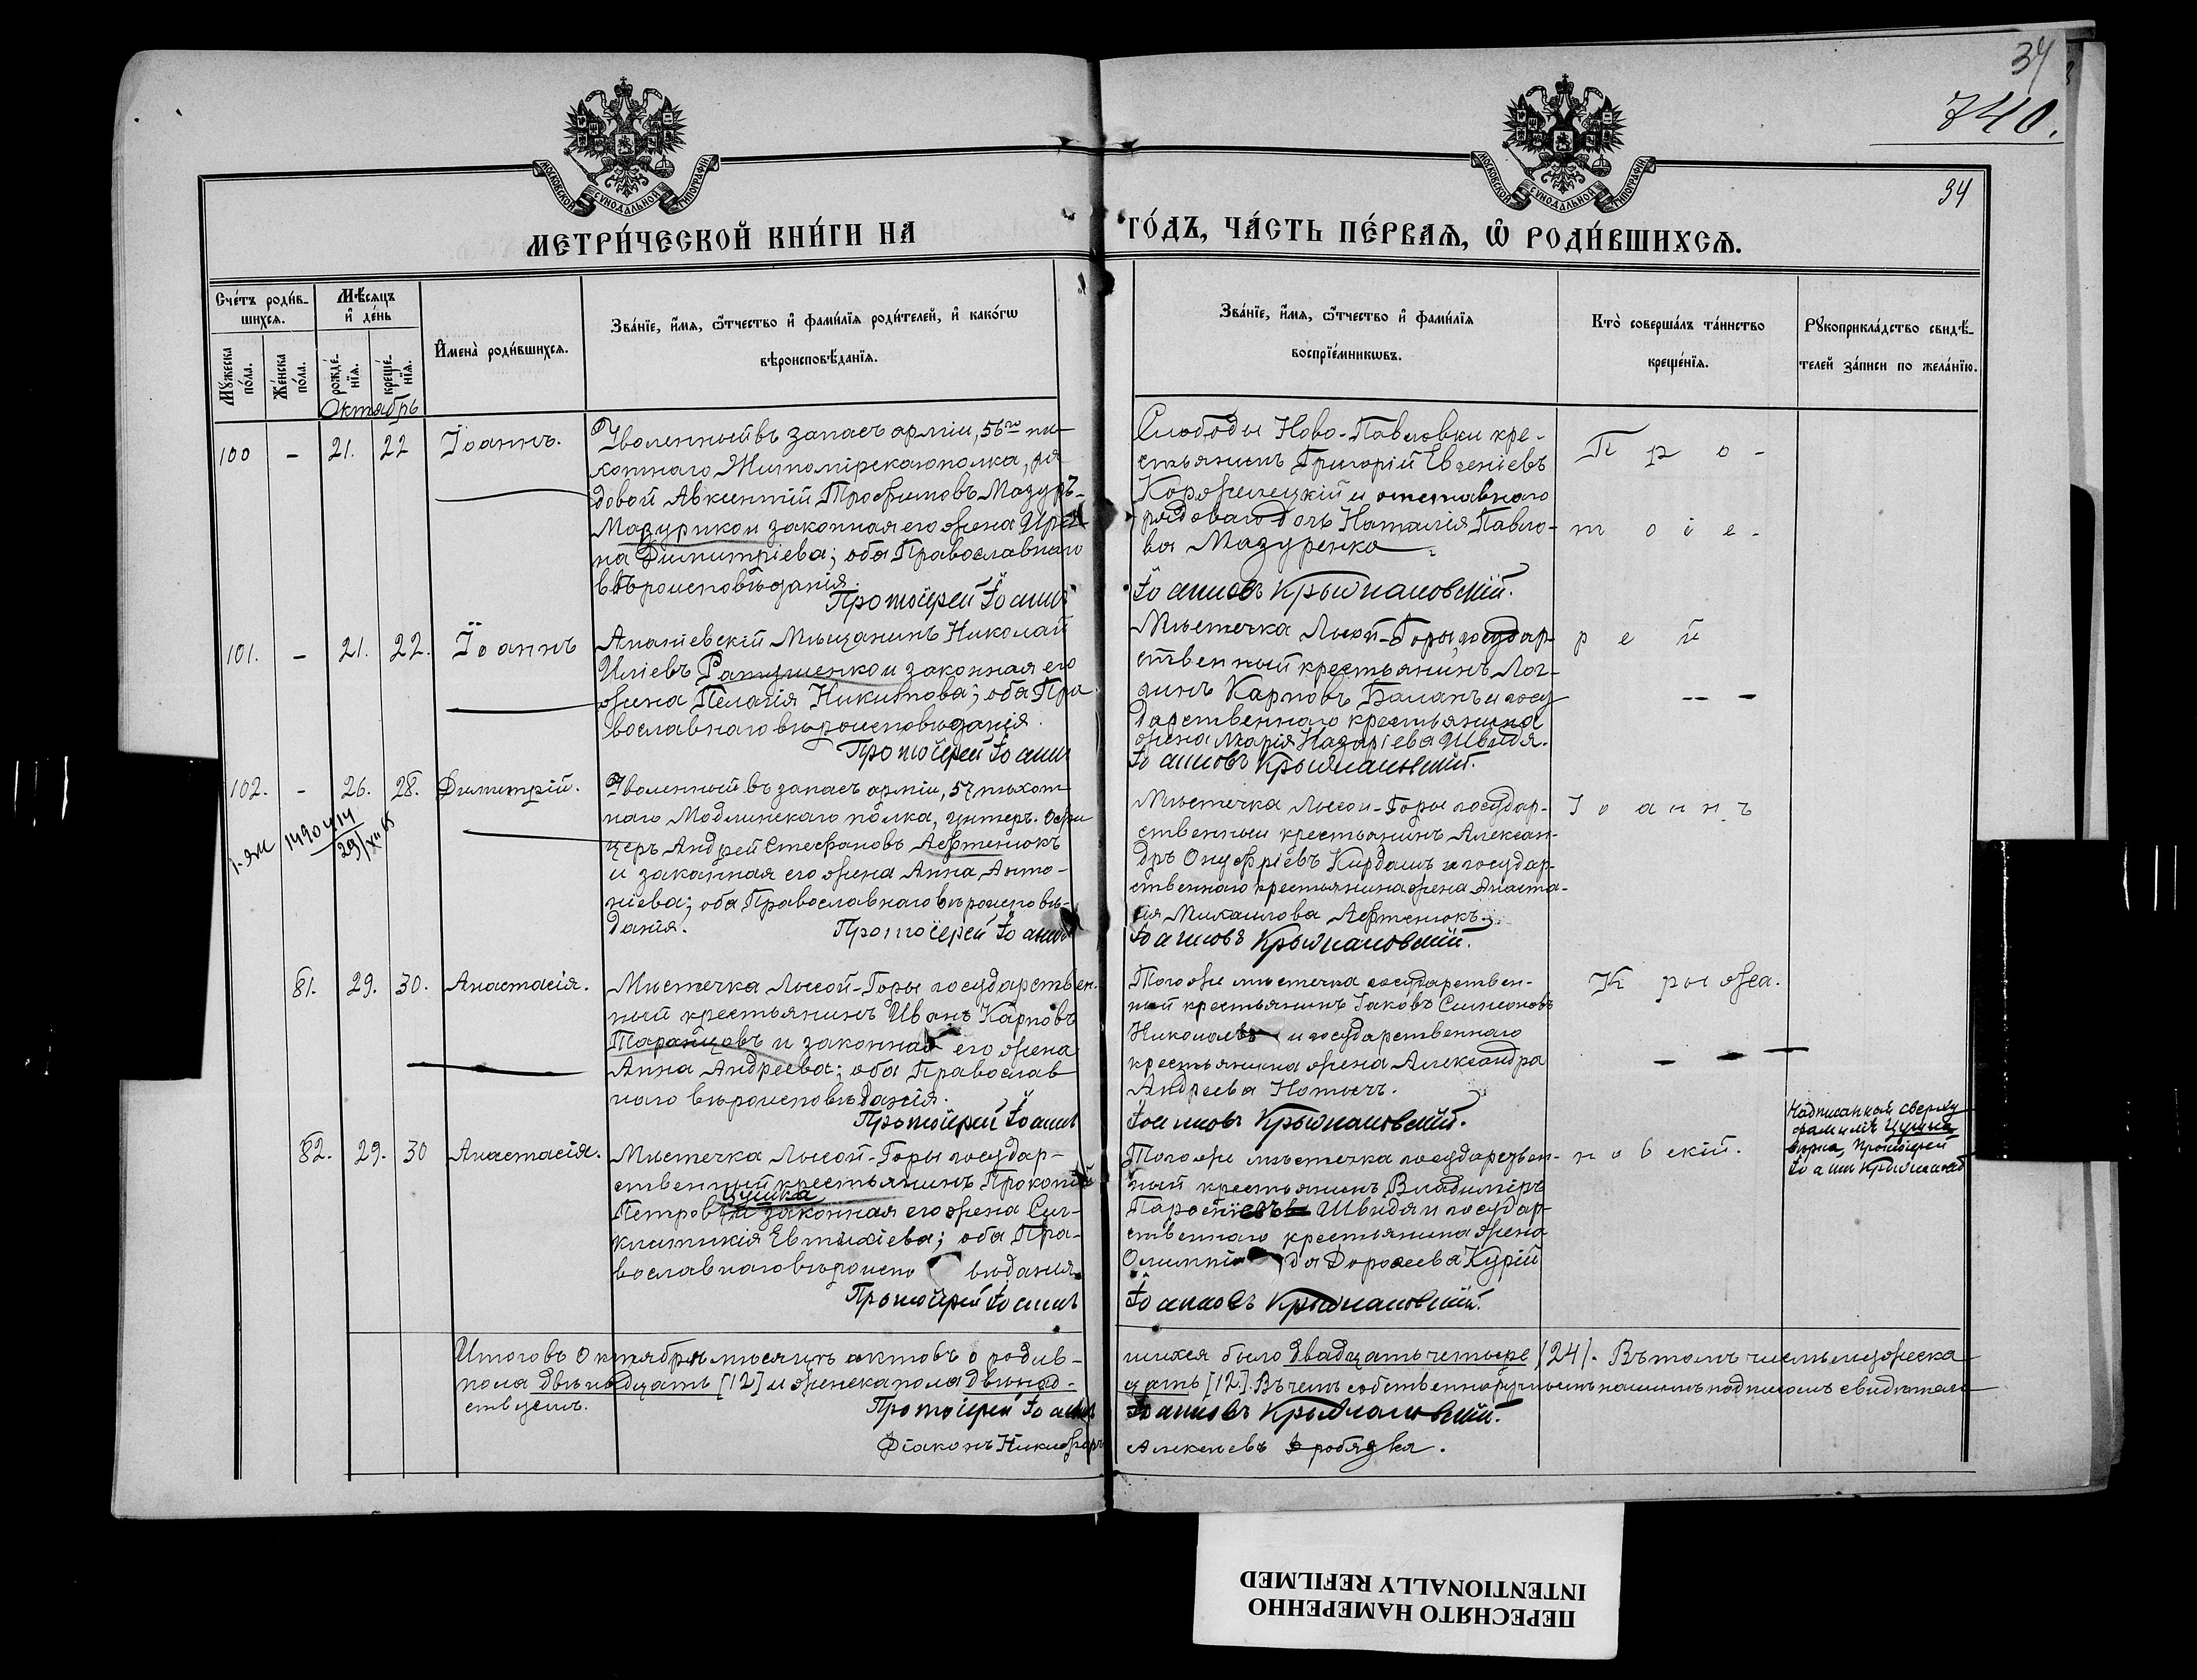 34
740.
34
МОСКОВСКОЙ СУНОДАЛЬНОЙ ТИПОГРАФІИ
МОСКОВСКОЙ СУНОДАЛЬНОЙ ТИПОГРАФІИ
МЕТРИ́ЧЕСКОЙ КНИ́ГИ НА ГО́ДЪ, ЧА́СТЬ ПЕ́РВАѦ, Ѡ РОДИ́ВШИХСѦ.
Сче́тъ роди́в-
шихсѧ.
Мѣ́сѧцъ
и҆ де́нь
Мꙋ́жеска
по́ла.
Же́нска
по́ла.
рожде́-
нїѧ.
креще́-
нїѧ.
И҆мена̀ роди́вшихсѧ.
Зва́нїе, и҆́мѧ, ѻ҆́тчество и҆ фами́лїѧ роди́телей, и҆ како́гѡ
вѣроисповѣ́данїѧ.
Зва́нїе, и҆́мѧ, ѻ҆́тчество и҆ фами́лїѧ
воспрїе́мникѡвъ.
Кто̀ соверша́лъ та́инство
креще́нїѧ.
Рꙋкоприкла́дство свидѣ́-
телей за́писи по жела́нїю.
Октябрь
100 - 21. 22 Іоаннъ.
Уволенный въ запасъ арміи, 56го пѣ-
хотнаго Житомірскаго полка, ря
довой Авксентій Трофимовъ Мазуръ-
Мазурико и законная его жена Ири-
на Димитріева; оба Православнаго
вѣроисповѣданія.
Протоіерей Іоаннъ
Слободы Ново-Павловки кре-
стьянинъ Григорій Евгеніевъ
Коржелецкій и отставнаго
рядоваго дочь Наталія Павло-
ва Мазуренко
Іоанновъ Крыжановскій.
101. - 21. 22. Іоаннъ
Ананіевскій Мѣщанинъ Николай
Иліевъ Ратушенко и законная его
жена Пелагія Никитова; оба Пра
вославнаго вѣроисповѣданія.
Протоіерей Іоаннъ
Мѣстечка Лысой-Горы, государ-
ственный крестьянинъ Лог-
гинъ Карповъ Баланъ и госу
дарственнаго крестьянина
жена Марія Назаріева Швидя.
Іоанновъ Крыжановскій.
102. - 26. 28. Димитрій.
1490414
29/XII 65
Уволенный въ запасъ арміи, 57 пѣхот
наго Модлинскаго полка, унтеръ. Офи
церъ Андрей Стефановъ Афтенюкъ
и законная его жена Анна Анто-
ніева; оба Православнаго вѣроисповѣ-
данія.
Протоіерей Іоаннъ
Мѣстечка Лысой-Горы государ-
ственный крестьянинъ Алексан-
дръ Онуфріевъ Кирдашъ и государ-
ственнаго крестьянина жена Анаста-
сія Михаилова Афтенюкъ.
Іоанновъ Крыжановскій.
81. 29. 30. Анастасія.
Мѣстечка Лысой-Горы государствен.
ный крестьянинъ Иванъ Карповъ
Таранцовъ и законная его жена
Анна Андреева; оба Православ
наго вѣроисповѣданія.
Протоіерей Іоаннъ
Того же мѣстечка государствен-
ный крестьянинъ Іаковъ Симеоновъ
и государственнаго
крестьянина жена Александра
Андреева
Іоанновъ Крыжановскій.
82. 29. 30 Анастасія.
Мѣстечка Лысой-Горы государ-
ственный крестьянинъ Прокопій
Цушка
Петровъ и законная его жена Син-
клитикія Евтихіева; оба Пра-
вославнаго вѣроиспо вѣданія.
Протоіерей Іоаннъ
Того же мѣстечка государствен-
ный крестьянинъ Владиміръ
Парѳеніевъ Швидя и государ-
ственнаго крестьянина жена
Олимпіада Дороѳеева Курій
Іоанновъ Крыжановскій.
П р о -
т о і е -
р е й
І о а н н ъ
К рыжа-
н о в скій.
Надписанной сверху
фамиліи Цушка
вѣрна, Протоіерей
Іоаннъ
Итого въ Октябрѣ мѣсяцѣ актовъ о родив-
шихся было двадцать четыре /24/. Въ томъ числѣ мужеска
пола двѣнадцать [12] и женска пола двѣнад-
цать [12]. Въ чемъ собственноручнымъ нашимъ подписомъ свидѣтель
ствуемъ.
Протоіерей Іоаннъ Іоанновъ Крыжановскій.
Діаконъ Никифоръ Алексѣевъ
ПЕРЕСНЯТО НАМЕРЕННО
INTENTIONALLY REFILMED